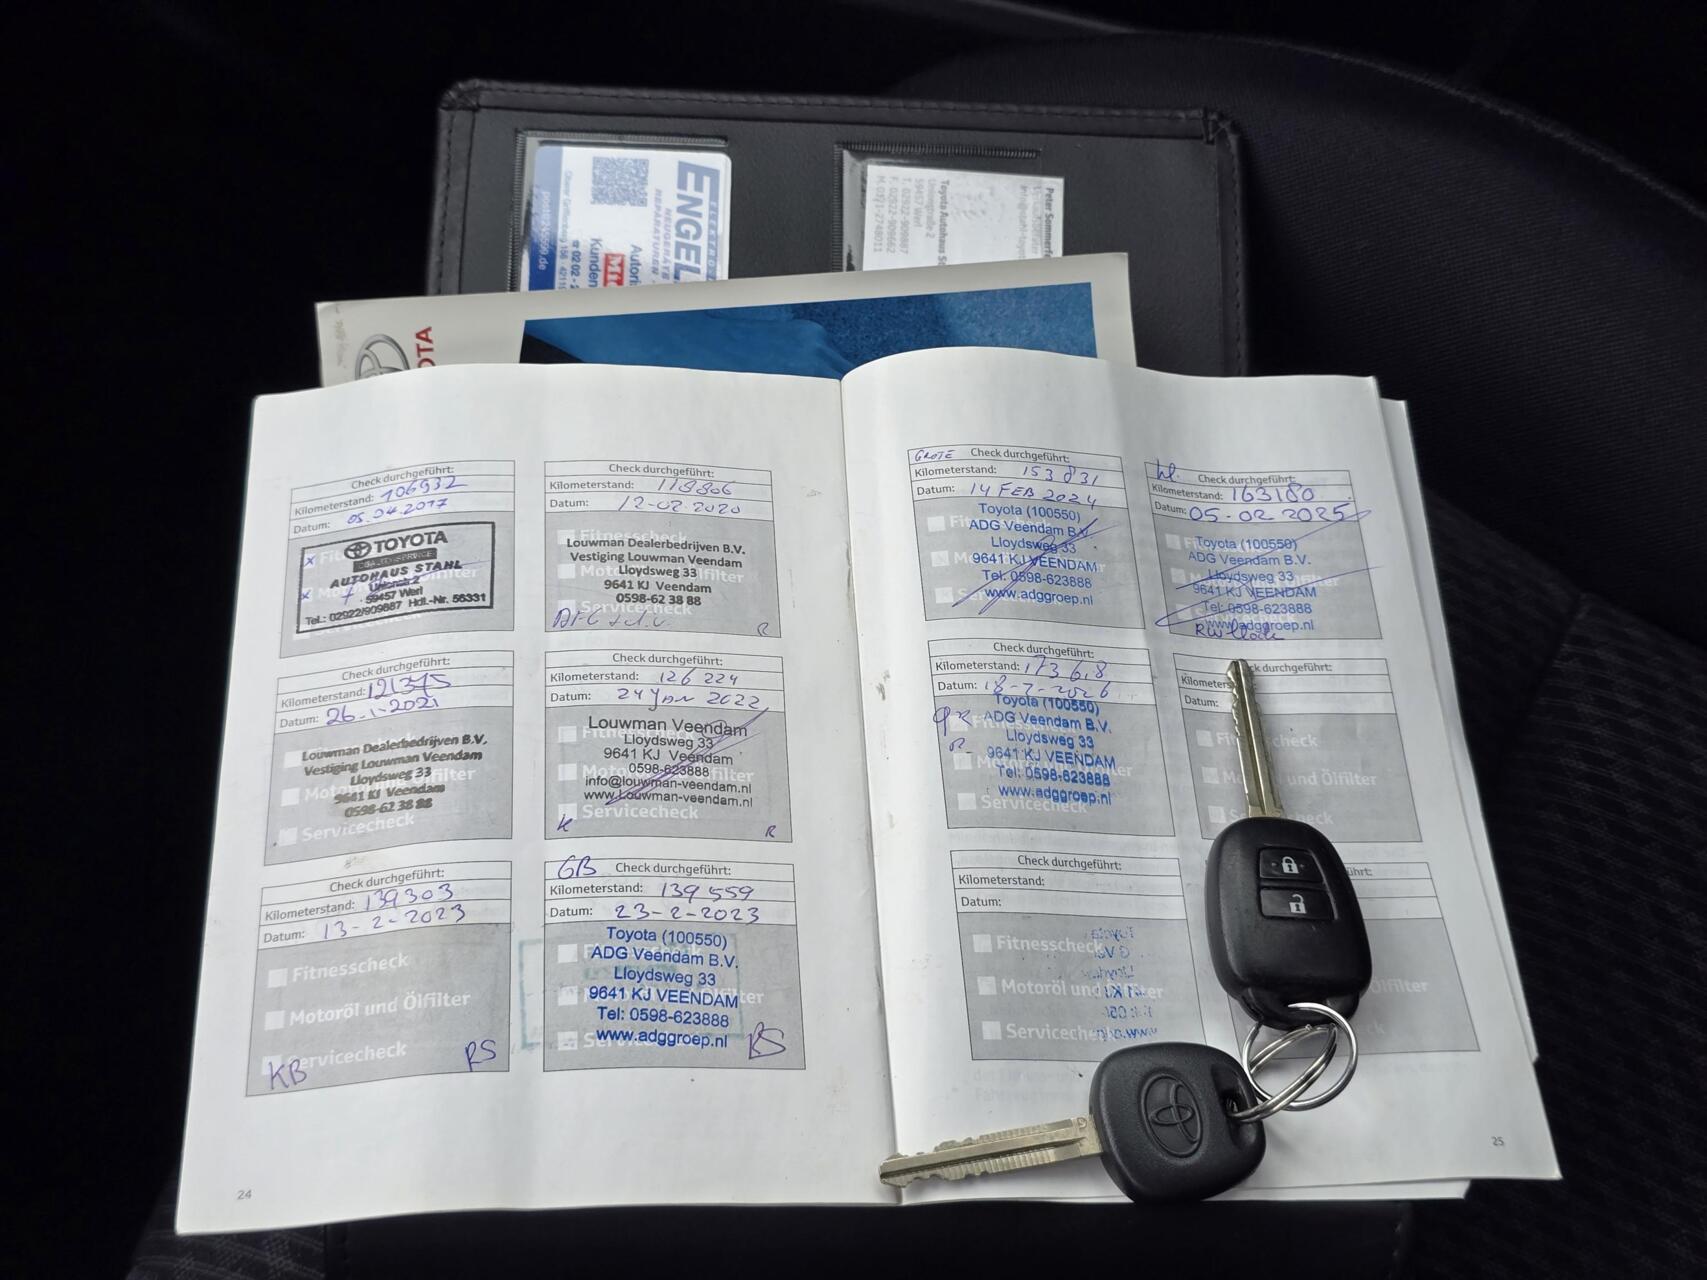 ENGEL
ELEKTROS
NEUGERÄTE
REPARATUREN
Autoris
Kunden
Peter Sommerfe
Toyota Autohaus St
Unionstraße 2
59457 Werl
T. 02922-909887
F. 02922-909662
M. 0171-2748011
TOYOTA
Check durchgeführt:
Kilometerstand: 106932
Datum: 05.04.2017
TOYOTA
AUTOHAUS STAHL
Unionstr. 2
59457 Werl
Tel.: 02922/909887 Hdl.-Nr. 56331
Check durchgeführt:
Kilometerstand: 118806
Datum: 12-02-2020
Louwman Dealerbedrijven B.V.
Vestiging Louwman Veendam
Lloydsweg 33
9641 KJ Veendam
0598-62 38 88
Servicecheck
R
Check durchgeführt:
Kilometerstand: 121375
Datum: 26-1-2021
Louwman Dealerbedrijven B.V.
Vestiging Louwman Veendam
Lloydsweg 33
9641 KJ Veendam
0598-62 38 88
Servicecheck
Check durchgeführt:
Kilometerstand: 126 224
Datum: 24 Jan 2022
Louwman Veendam
Lloydsweg 33
9641 KJ Veendam
0598-623888
info@louwman-veendam.nl
www.Louwman-veendam.nl
Servicecheck
K R
Check durchgeführt:
Kilometerstand: 139303
Datum: 13-2-2023
Fitnesscheck
Motoröl und Ölfilter
Servicecheck
KB RS
GB Check durchgeführt:
Kilometerstand: 139 559
Datum: 23-2-2023
Toyota (100550)
ADG Veendam B.V.
Lloydsweg 33
9641 KJ VEENDAM
Tel: 0598-623888
www.adggroep.nl
RS
24
GROTE Check durchgeführt:
Kilometerstand: 153831
Datum: 14 FEB 2024
Toyota (100550)
ADG Veendam B.V.
Lloydsweg 33
9641 KJ VEENDAM
Tel: 0598-623888
www.adggroep.nl
Check durchgeführt:
Kilometerstand: 163180
Datum: 05-02-2025
Toyota (100550)
ADG Veendam B.V.
Lloydsweg 33
9641 KJ VEENDAM
Tel: 0598-623888
www.adggroep.nl
Check durchgeführt:
Kilometerstand:
Datum:
Toyota (100550)
ADG Veendam B.V.
Lloydsweg 33
9641 KJ VEENDAM
Tel: 0598-623888
www.adggroep.nl
Servicecheck
ck durchgeführt:
Kilometers
Datum:
check
und Ölfilter
Check durchgeführt:
Kilometerstand:
Datum:
Fitnesscheck
Motoröl und
Servicecheck
ührt:
Ölfilter
25